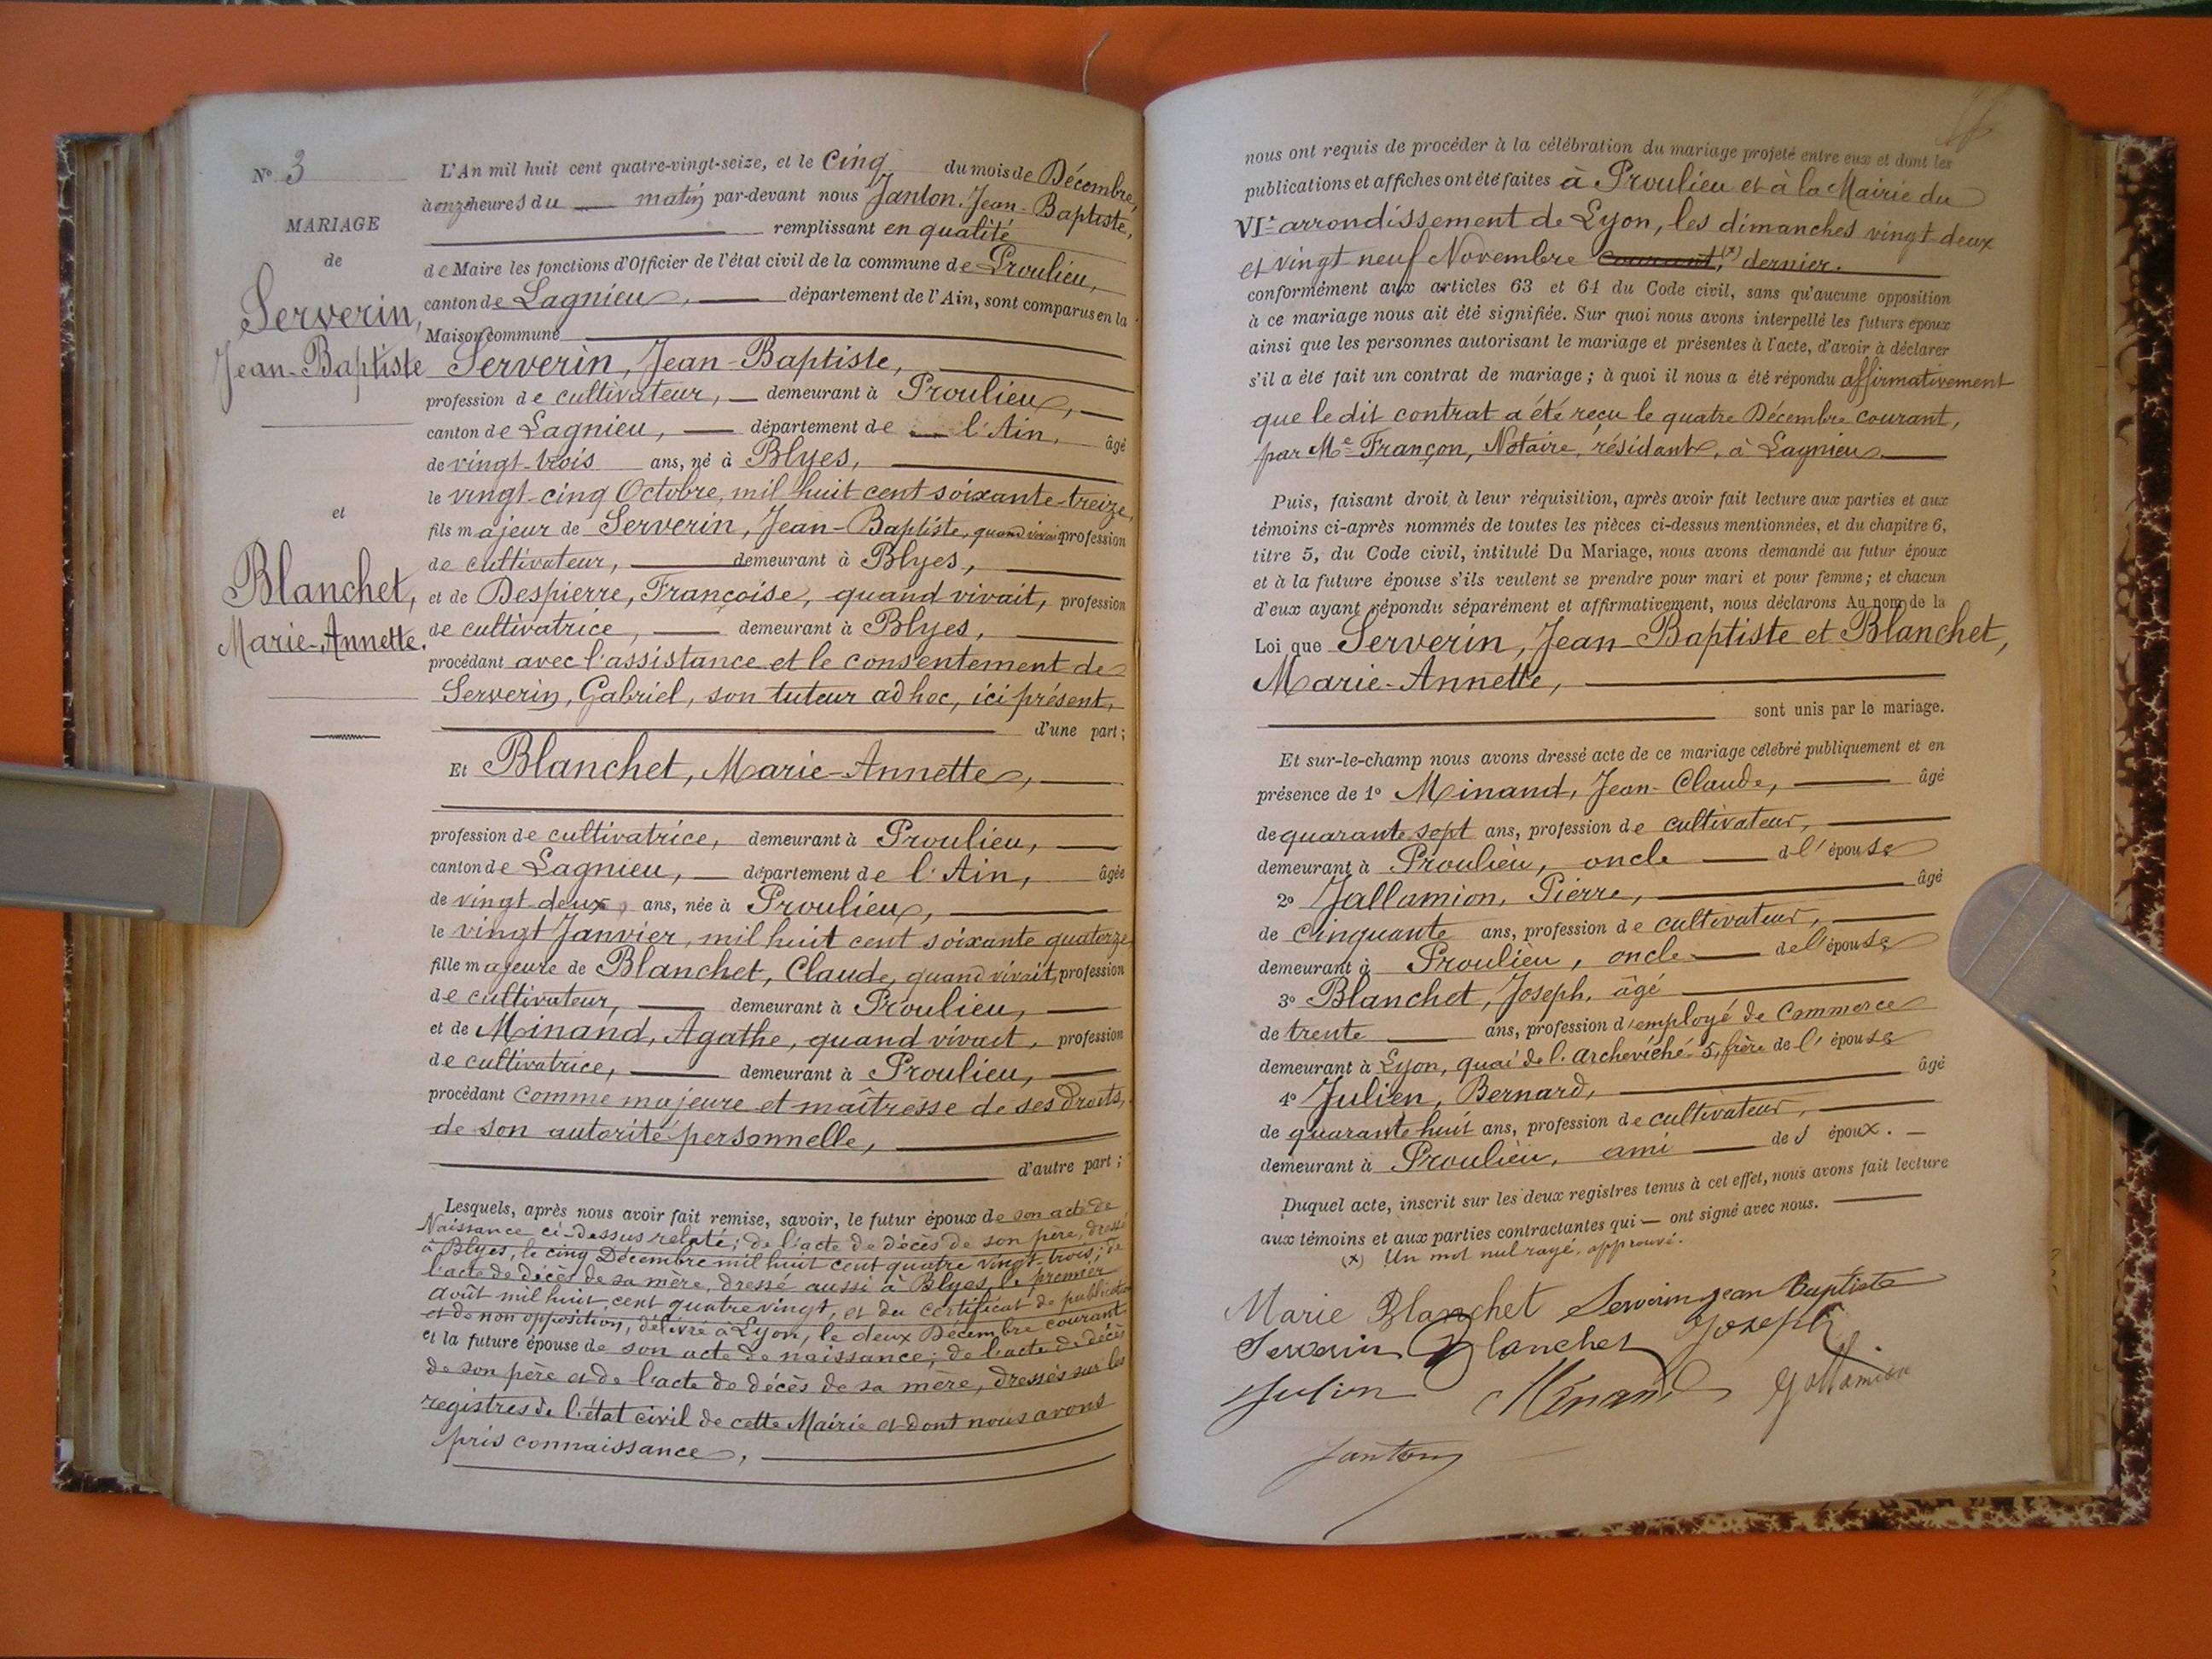 N° 3
MARIAGE
de
Serverin,
Jean-Baptiste
et
Blanchet,
Marie-Annette.
L'An mil huit cent quatre-vingt-seize, et le Cinq du mois de Décembre,
à onze heures du matin par-devant nous Janton, Jean-Baptiste,
remplissant en qualité
de Maire les fonctions d'Officier de l'état civil de la commune de Proulieu,
canton de Lagnieu, département de l'Ain, sont comparus en la
Maison commune
Serverin, Jean-Baptiste,
profession de cultivateur, demeurant à Proulieu,
canton de Lagnieu, département de l'Ain, âgé
de vingt-trois ans, né à Blyes,
le vingt-cinq Octobre, mil huit cent soixante-treize,
fils majeur de Serverin, Jean-Baptiste, quand vivait profession
de cultivateur, demeurant à Blyes,
et de Despierre, Françoise, quand vivait, profession
de cultivatrice, demeurant à Blyes,
procédant avec l'assistance et le consentement de
Serverin, Gabriel, son tuteur ad hoc, ici présent,
d'une part;
Et Blanchet, Marie-Annette,
profession de cultivatrice, demeurant à Proulieu,
canton de Lagnieu, département de l'Ain, âgée
de vingt-deux, ans, née à Proulieu,
le vingt Janvier, mil huit cent soixante quatorze
fille majeure de Blanchet, Claude, quand vivait, profession
de cultivateur, demeurant à Proulieu,
et de Minand, Agathe, quand vivait, profession
de cultivatrice, demeurant à Proulieu,
procédant comme majeure et maîtresse de ses droits,
de son autorité personnelle,
d'autre part;
Lesquels, après nous avoir fait remise, savoir, le futur époux de son acte de
Naissance ci-dessus relaté; de l'acte de décès de son père, dressé
à Blyes, le cinq Décembre mil huit cent quatre vingt-trois; de
l'acte de décès de sa mère, dressé aussi à Blyes, le premier
Août mil huit cent quatre vingt, et du certificat de publication
et de non opposition, délivré à Lyon, le deux Décembre courant
et la future épouse de son acte de naissance; de l'acte de décès
de son père et de l'acte de décès de sa mère, dressés sur les
registres de l'état civil de cette Mairie et dont nous avons
pris connaissance,
nous ont requis de procéder à la célébration du mariage projeté entre eux et dont les
publications et affiches ont été faites à Proulieu et à la Mairie du
VIe arrondissement de Lyon, les dimanches vingt deux
et vingt neuf Novembre courant, (x) dernier.
conformément aux articles 63 et 64 du Code civil, sans qu'aucune opposition
à ce mariage nous ait été signifiée. Sur quoi nous avons interpellé les futurs époux
ainsi que les personnes autorisant le mariage et présentes à l'acte, d'avoir à déclarer
s'il a été fait un contrat de mariage; à quoi il nous a été répondu affirmativement
que le dit contrat a été reçu le quatre Décembre courant,
par Me Françon, Notaire, résidant, à Lagnieu.
Puis, faisant droit à leur réquisition, après avoir fait lecture aux parties et aux
témoins ci-après nommés de toutes les pièces ci-dessus mentionnées, et du chapitre 6,
titre 5, du Code civil, intitulé Du Mariage, nous avons demandé au futur époux
et à la future épouse s'ils veulent se prendre pour mari et pour femme; et chacun
d'eux ayant répondu séparément et affirmativement, nous déclarons Au nom de la
Loi que Serverin, Jean-Baptiste et Blanchet,
Marie-Annette,
sont unis par le mariage.
Et sur-le-champ nous avons dressé acte de ce mariage célébré publiquement et en
présence de 1° Minand, Jean-Claude, âgé
de quarante sept ans, profession de cultivateur,
demeurant à Proulieu, oncle de l'épouse
2° Jallamion, Pierre, âgé
de cinquante ans, profession de cultivateur,
demeurant à Proulieu, oncle de l'épouse
3° Blanchet, Joseph, âgé
de trente ans, profession d'employé de Commerce
demeurant à Lyon, quai de l'archevêché 5, frère de l'épouse
4° Julien, Bernard, âgé
de quarante huit ans, profession de cultivateur,
demeurant à Proulieu, ami des époux.
Duquel acte, inscrit sur les deux registres tenus à cet effet, nous avons fait lecture
aux témoins et aux parties contractantes qui ont signé avec nous.
(x) Un mot nul rayé, approuvé.
Marie Blanchet Serverin jean Baptiste
Serverin Blanchet Joseph
Julien Ménand Jallamion
Janton